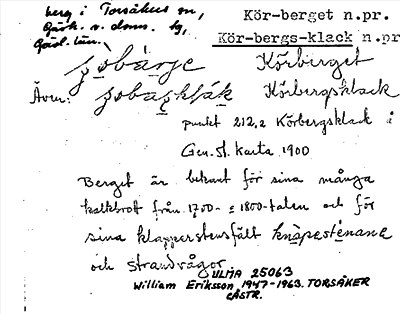 berg i Torsåkers sn,
Gästr. v. doms. hg,
Gävl. län.
Kör-berget n.pr.
Kör-bergs-klack n.pr
Körberget
Även: Körbergsklack
punkt 212,2 Körbergsklack å
Gen. St. Karta 1900
Berget är bekant för sina många
kalkbrott från 1700- o 1800-talen och för
sina klapperstensfält knäpestenane
och strandvågor.
ULMA 25063
William Eriksson 1947-1963. TORSÅKER
GÄSTR.